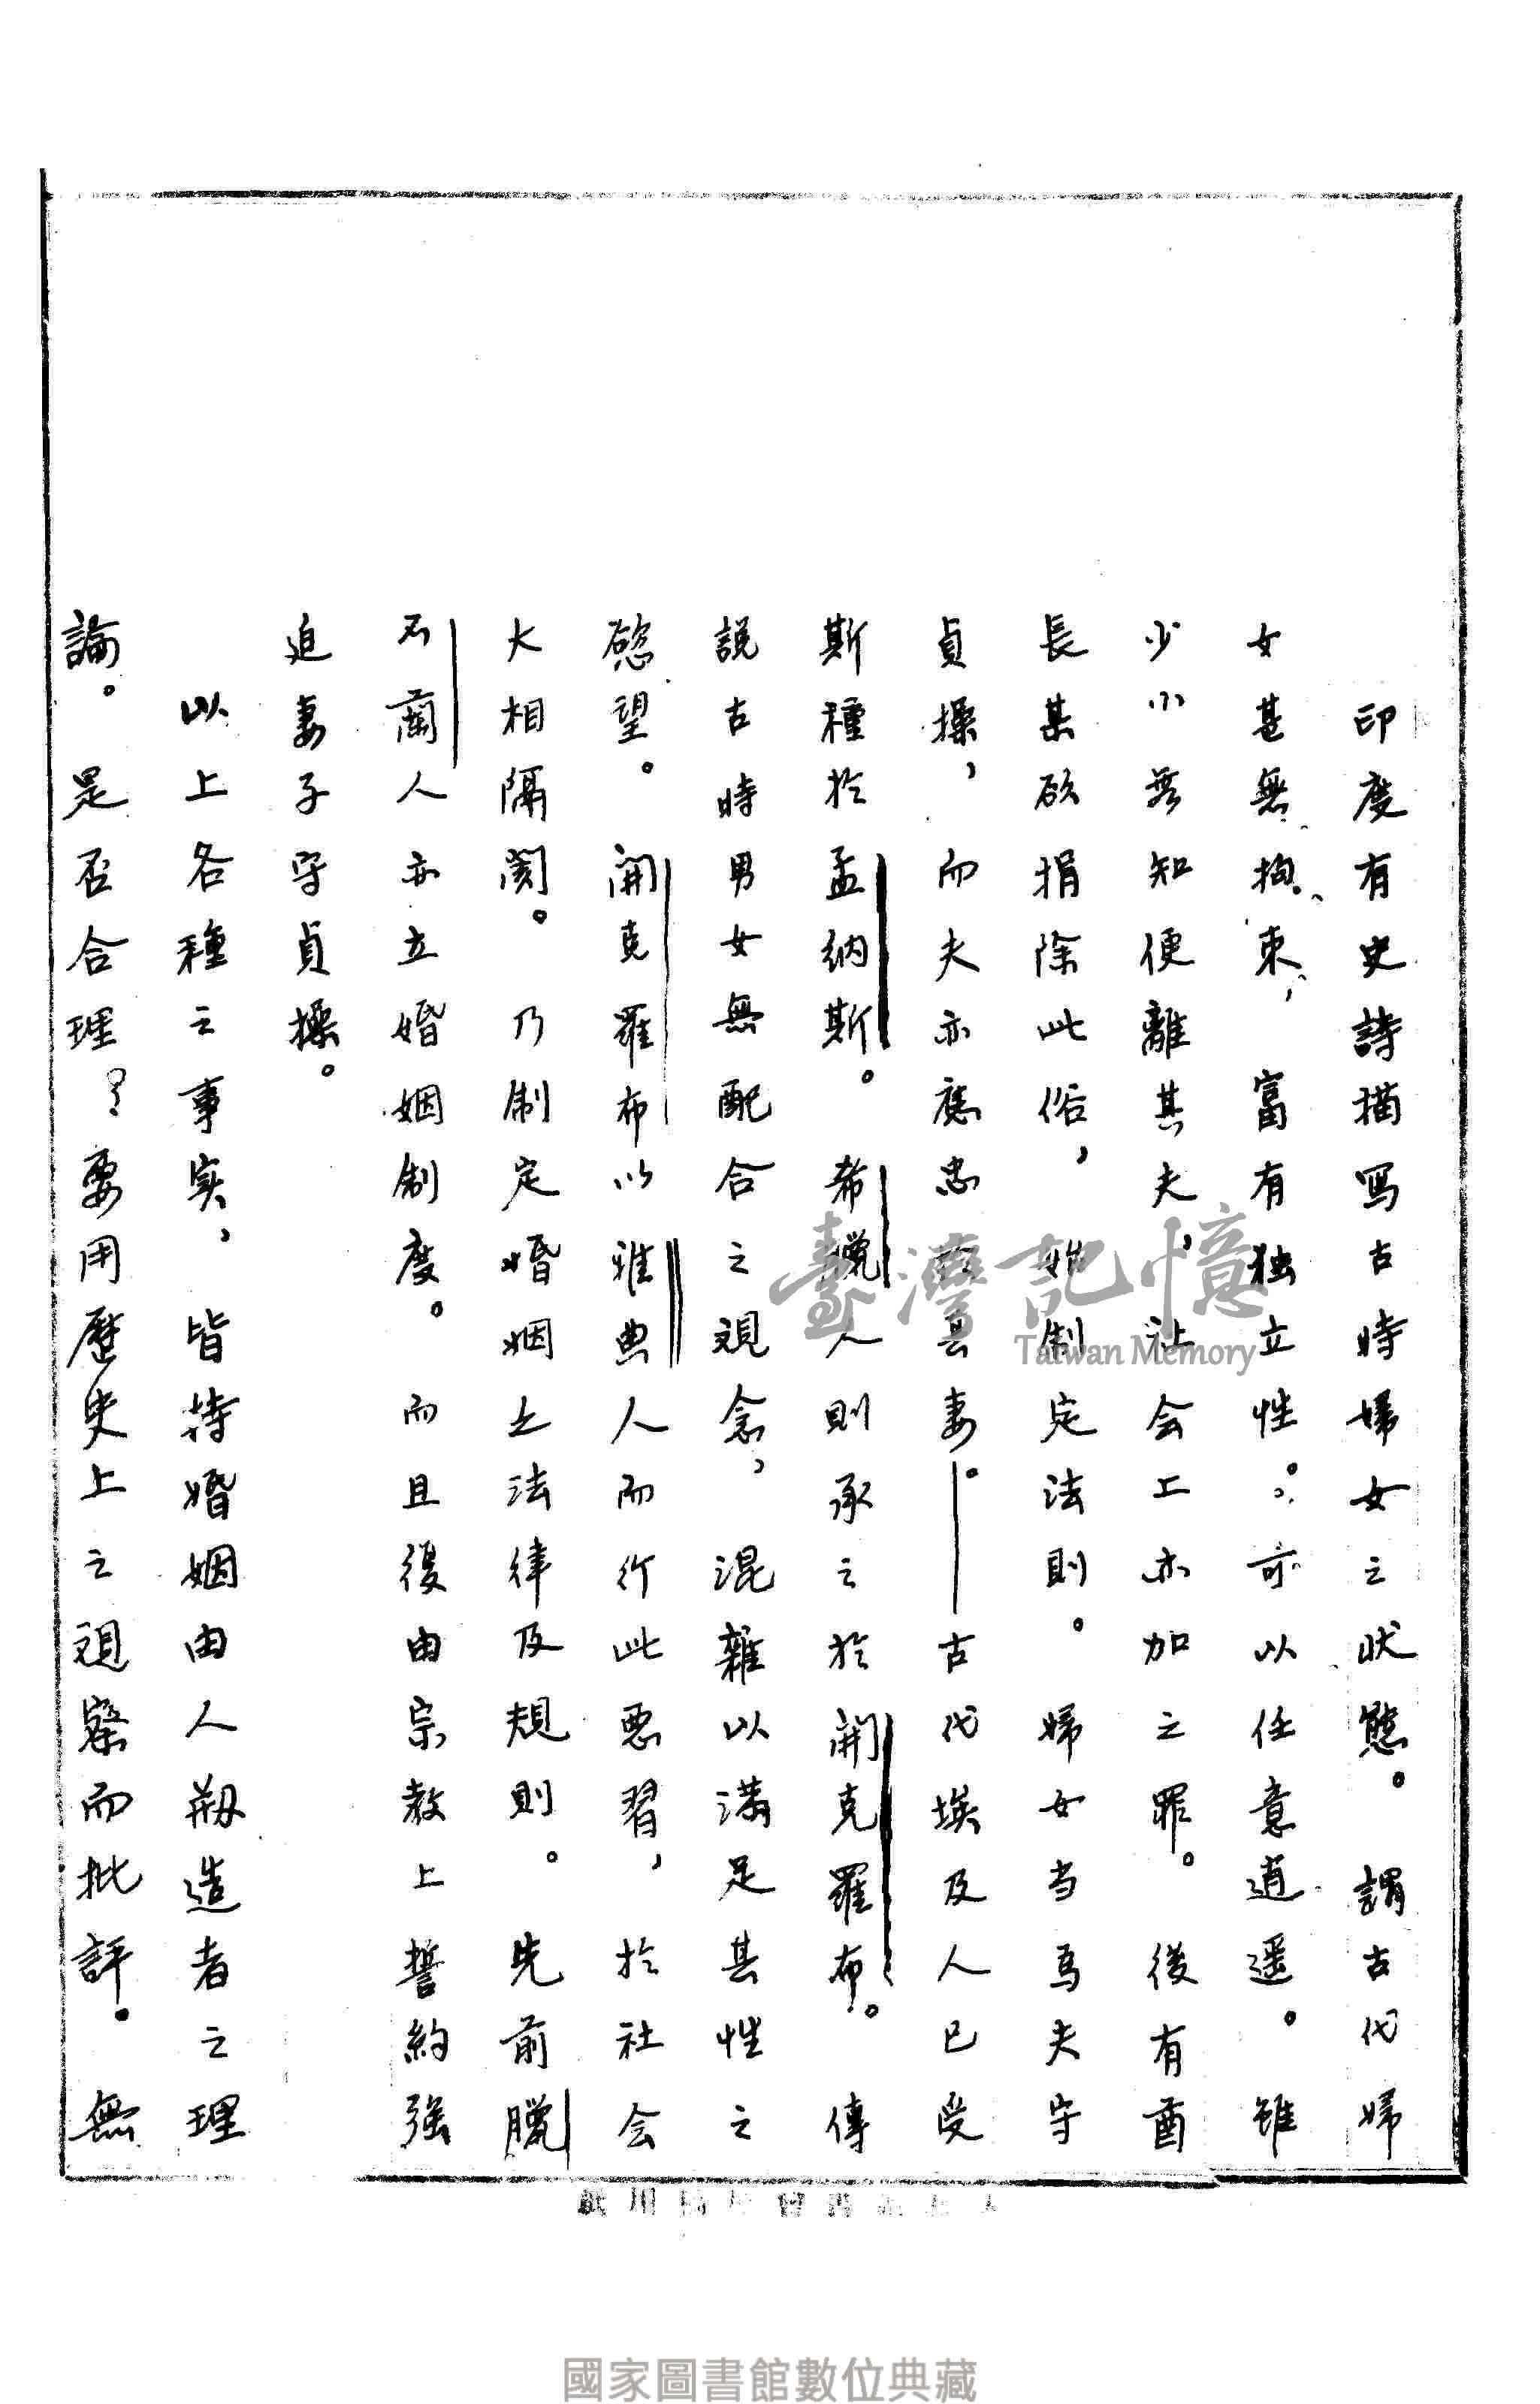 印度有史詩描写古時婦女之状態。謂古代婦
女甚無拘束，富有独立性。可以任意逍遥。雖
少小無知便離其夫，社会上亦加之罪。後有酋
長某欲捐除此俗，始制定法則。婦女当為夫守
貞操，而夫亦應忠於其妻。——古代埃及人已受
斯種於孟納斯。希臘人則承之於開克羅布。傳
説古時男女無配合之观念，混雜以満足其性之
慾望。開克羅布以雅典人而行此悪習，於社会
大相隔阂。乃制定婚姻之法律及規則。先前臘
不蘭人亦立婚姻制度。而且復由宗教上誓約強
迫妻子守貞操。
以上各種之事実，皆持婚姻由人剏造者之理
論。是否合理？要用歷史上之观察而批評。無
臺灣記憶
Taiwan Memory
國家圖書館數位典藏